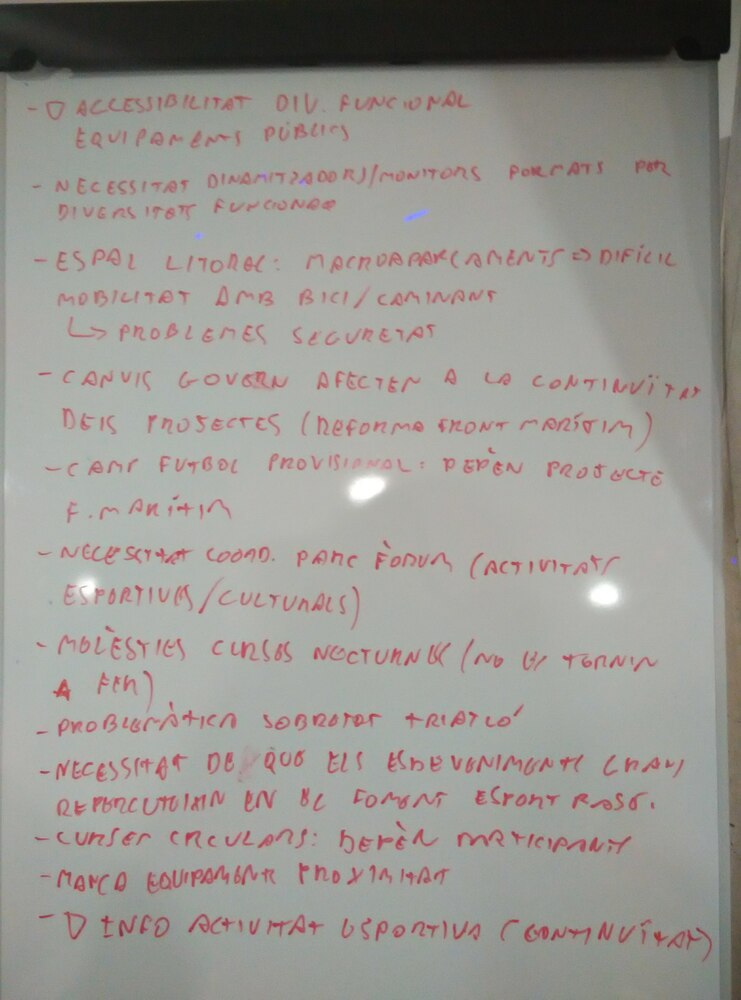 - ▽ ACCESSIBILITAT DIV. FUNCIONAL
EQUIPAMENTS PÚBLICS
- NECESSITAT DINAMITZADORS/MONITORS FORMATS PER
DIVERSITATS FUNCIONAL
- ESPAI LITORAL: MACROAPARCAMENTS => DIFÍCIL
MOBILITAT AMB BICI/CAMINANT
↳ PROBLEMES SEGURETAT
- CANVIS GOVERN AFECTEN A LA CONTINUÏTAT
DELS PROJECTES (REFORMA FRONT MARÍTIM)
- CAMP FUTBOL PROVISIONAL: DEPÈN PROJECTE
F. MARÍTIM
- NECESSITAT COORD. PARC FÒRUM (ACTIVITATS
ESPORTIVES/CULTURALS)
- MOLÈSTIES CURSES NOCTURNES (NO ES TORNIN
A FER)
- PROBLEMÀTICA SOBRETOT TRIATLÓ
- NECESSITAT DE QUE ELS ESDEVENIMENTS GRANS
REPERCUTEIXIN EN EL FOMENT ESPORT BASE.
- CURSES CIRCULARS: DEPÈN PARTICIPANTS
- MANCA EQUIPAMENT PROXIMITAT
- ▽ INFO ACTIVITAT ESPORTIVA (CONTINUÏTAT)